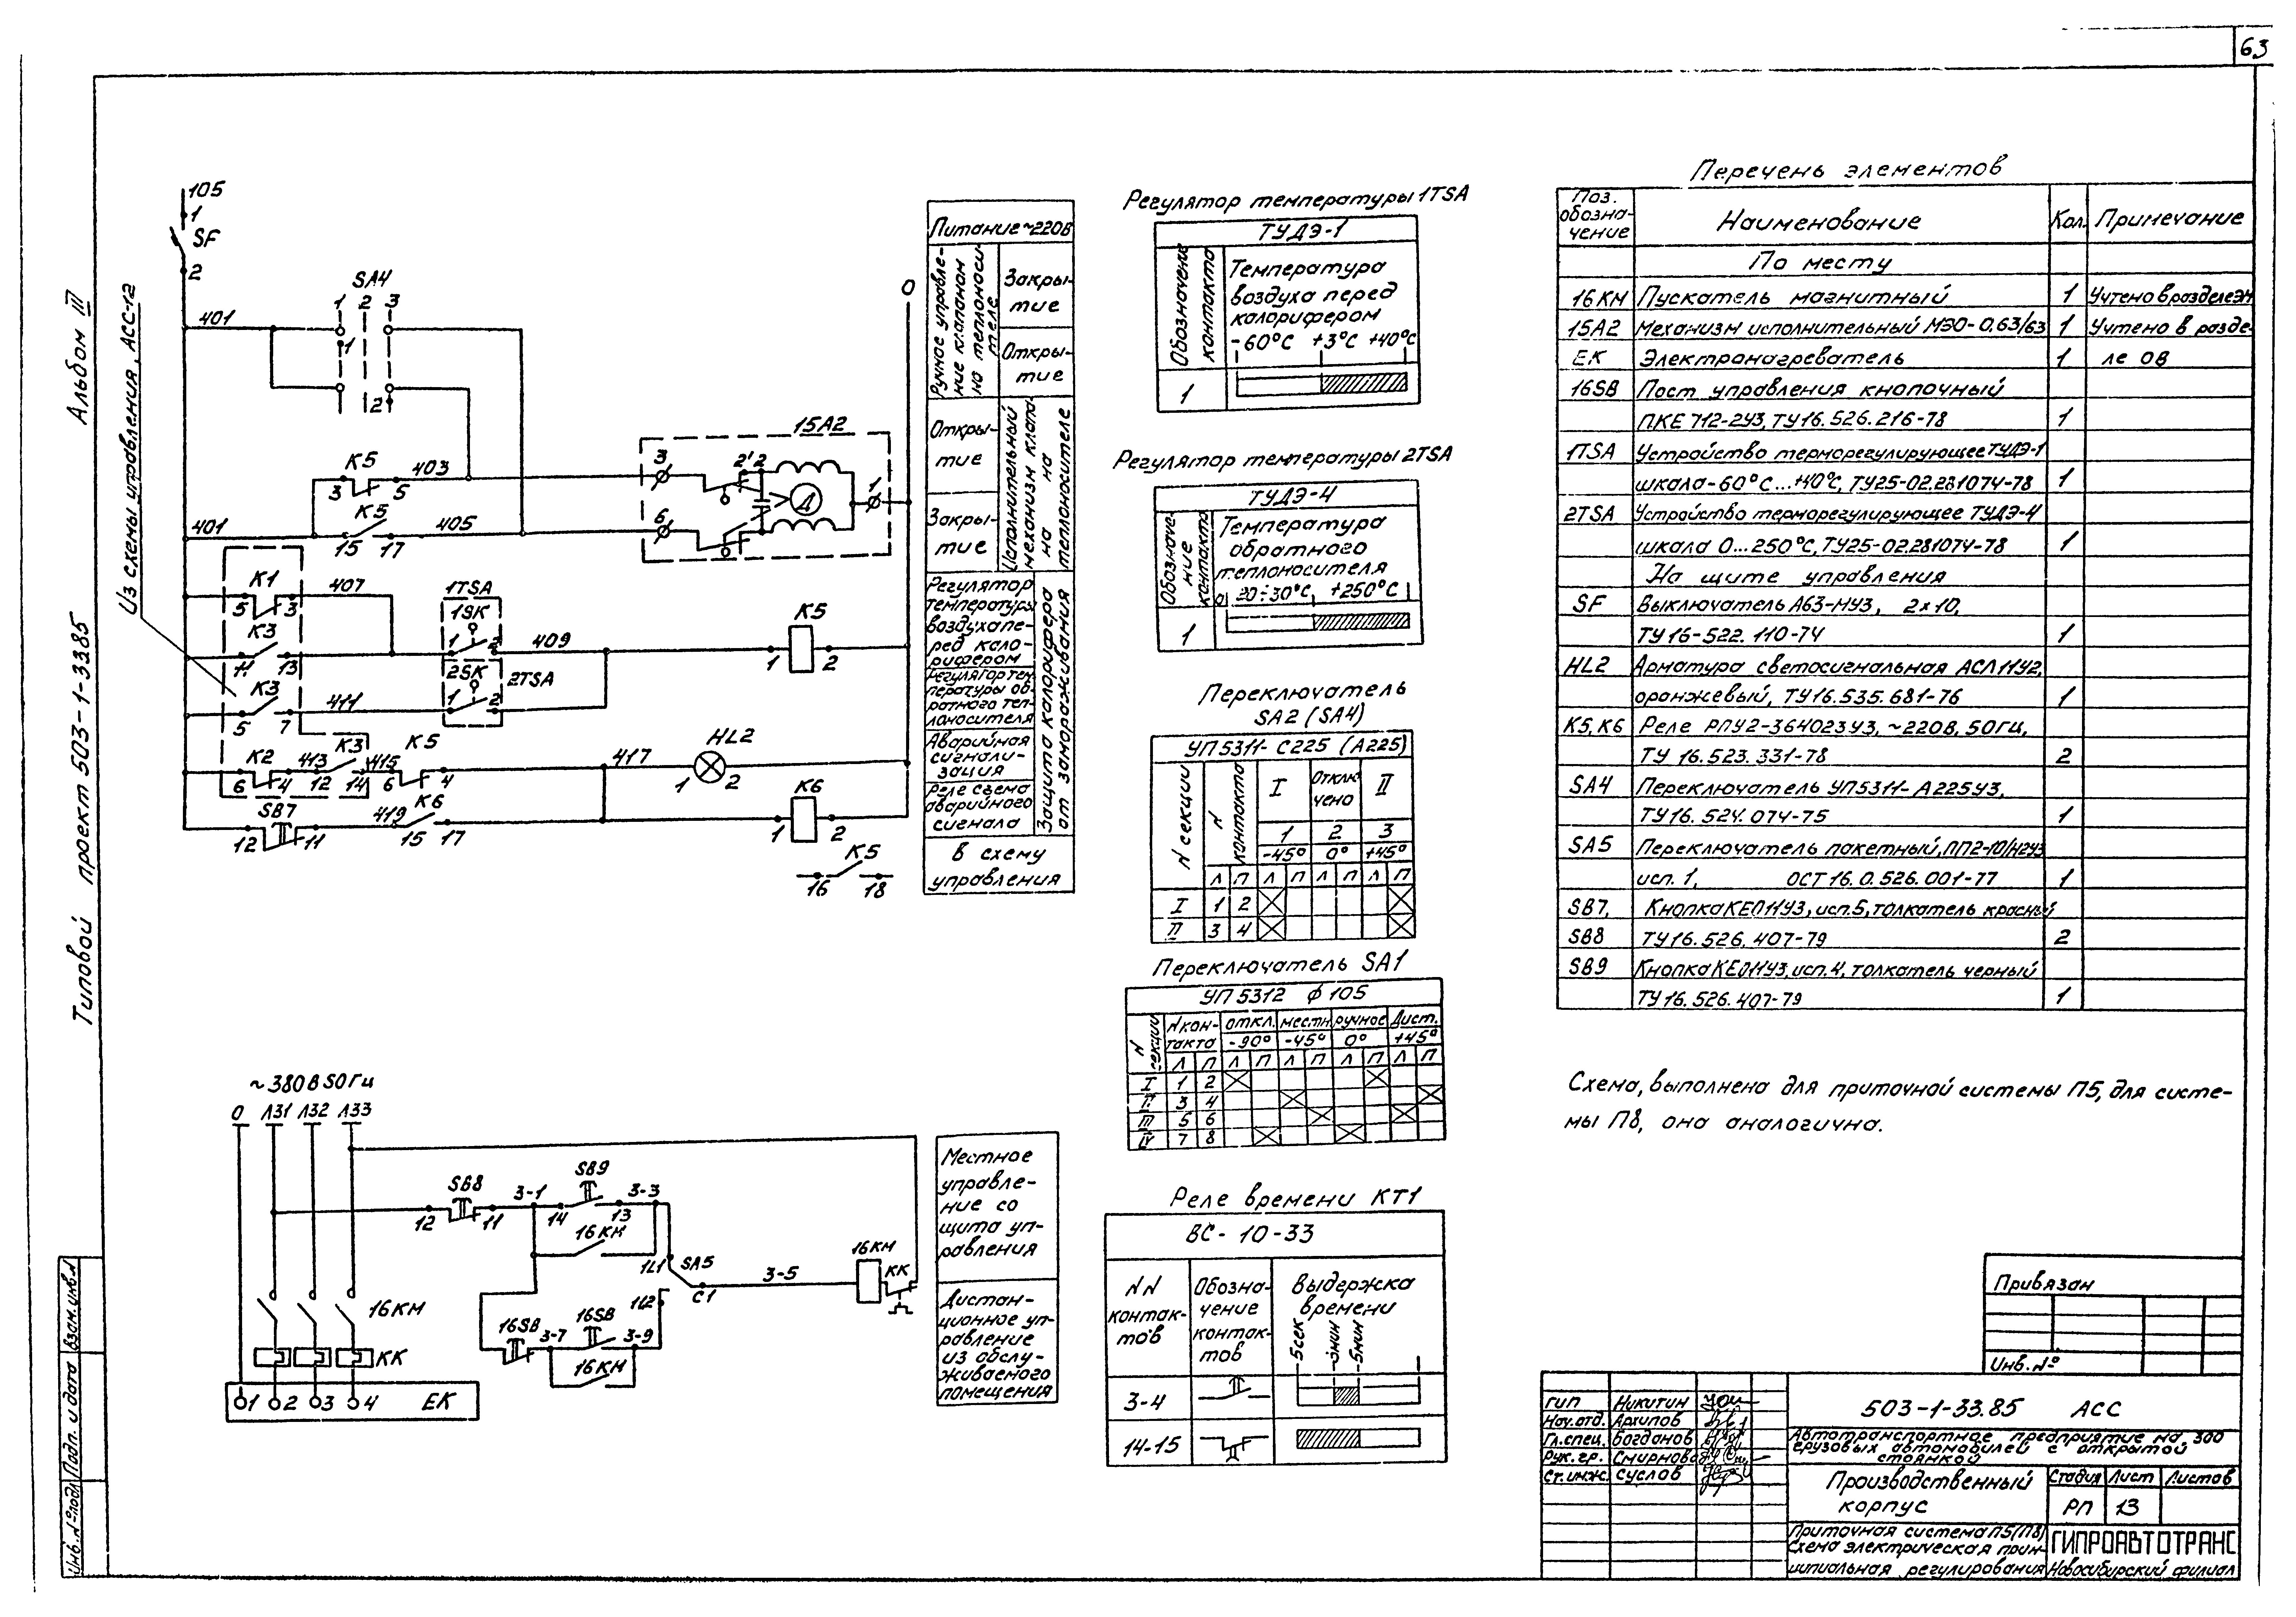 63
Альбом III
Типовой проект 503-1-33.85
Из схемы управления, АСС-12
105
1
SF
2
SA4
1 2 3
401
1
2
K5
3 5
403
401
K5
15 17
405
15A2
3
2' 2
Д
1
6
0
K1
5 3
407
K3
11 13
1TSA
1SK
1 2
409
K5
1 2
K3
5 7
411
2SK
1 2
2TSA
K2
6 4
413
K3
12 14
415
K5
6 4
417
HL2
1 2
SB7
12 11
419
K6
15 17
K6
1 2
K5
16 18
Питание ~220В
Ручное управление клапаном на теплоносителе
Закры-
тие
Откры-
тие
Исполнительный механизм клапана на теплоносителе
Откры-
тие
Закры-
тие
Защита калорифера от замораживания
Регулятор
температуры
воздуха пе-
ред кало-
рифером
Регулятор тем-
пературы об-
ратного теп-
лоносителя
Аварийная
сигнали-
зация
Реле съема
аварийного
сигнала
В схему
управления
~380В 50Гц
0 Л31 Л32 Л33
16КМ
КК
1 2 3 4 ЕК
SB8
12 11
3-1
SB9
14 13
3-3
16КМ
1L1
SA5
1L2
C1
3-5
16КМ
КК
16SB
3-7
16SB
3-9
16КМ
Местное
управле-
ние со
щита уп-
равления
Дистан-
ционное уп-
равление
из обслу-
живаемого
помещения
Регулятор температуры 1TSA
ТУДЭ-1
Обозначение контакта
Температура
воздуха перед
калорифером
-60°С +3°С +40°С
1
Регулятор температуры 2TSA
ТУДЭ-4
Обозначение контакта
Температура
обратного
теплоносителя
0 20÷30°С +250°С
1
Переключатель
SA2 (SA4)
УП5311-С225 (А225)
N секции
N контакта
I Отклю
чено II
1 2 3
-45° 0° +45°
Л П Л П Л П Л П
I 1 2
II 3 4
Переключатель SA1
УП5312 ф105
N секции
N кон-
такта
откл. местн. ручное Дист.
-90° -45° 0° +45°
Л П Л П Л П Л П Л П
I 1 2
II 3 4
III 5 6
IV 7 8
Реле времени КТ1
ВС-10-33
NN
контак-
тов
Обозна-
чение
контак-
тов
Выдержка
времени
5сек 3мин 5мин
3-4
14-15
Перечень элементов
Поз.
обозна-
чение Наименование Кол. Примечание
По месту
16КМ Пускатель магнитный 1 Учтено в разделе ЭМ
15А2 Механизм исполнительный МЭО-0,63/63 1 Учтено в разде-
ЕК Электранагреватель 1 ле ОВ
16SB Пост управления кнопочный
ПКЕ 712-2У3, ТУ16.526.216-78 1
1TSA Устройство терморегулирующее ТУДЭ-1
шкала-60°С...+40°С, ТУ25-02.281074-78 1
2TSA Устройство терморегулирующее ТУДЭ-4
шкала 0...250°С, ТУ25-02.281074-78 1
На щите управления
SF Выключатель А63-МУ3, 2х10,
ТУ16-522.110-74 1
HL2 Арматура светосигнальная АСЛ11У2,
оранжевый, ТУ16.535.681-76 1
К5, К6 Реле РПУ2-364023У3, ~220В, 50Гц,
ТУ 16.523.331-78 2
SA4 Переключатель УП5311-А225У3,
ТУ16.524.074-75 1
SA5 Переключатель пакетный, ПП2-10/Н2У3
исп.1, ОСТ16.0.526.001-77 1
SB7, Кнопка КЕ011У3, исп.5, толкатель красный
SB8 ТУ16.526.407-79 2
SB9 Кнопка КЕ011У3, исп.4, толкатель черный
ТУ16.526.407-79 1
Схема, выполнена для приточной системы П5, для систе-
мы П8, она аналогична.
Привязан
Инв.№
ГИП Никитин
Нач.отд. Архипов
Гл.спец. Богданов
Рук.гр. Смирнова
Ст.инж. Суслов
503-1-33.85 АСС
Автотранспортное предприятие на 300
грузовых автомобилей с открытой
стоянкой
Производственный
корпус
Стадия Лист Листов
РП 13
Приточная система П5(П8)
Схема электрическая прин-
ципиальная регулирования
ГИПРОАВТОТРАНС
Новосибирский филиал
Инв.№подл. Подп. и дата Взам.инв.№